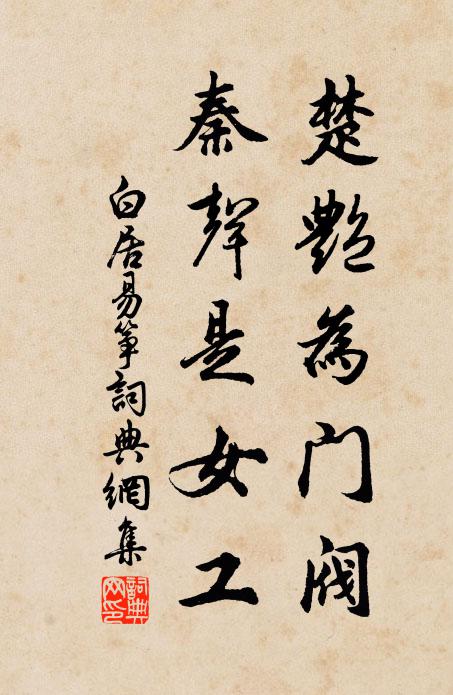 楚艷為门阀
秦聲是女工
白居易箏詞典網集
詞典
网印